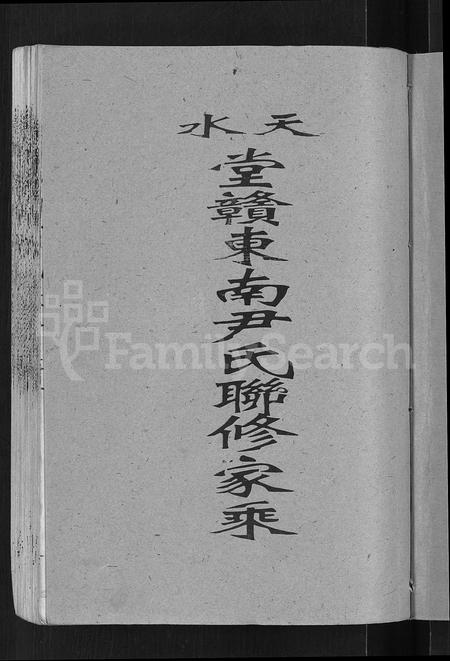 天水
堂贛東南尹氏聯修家乘
FamilySearch